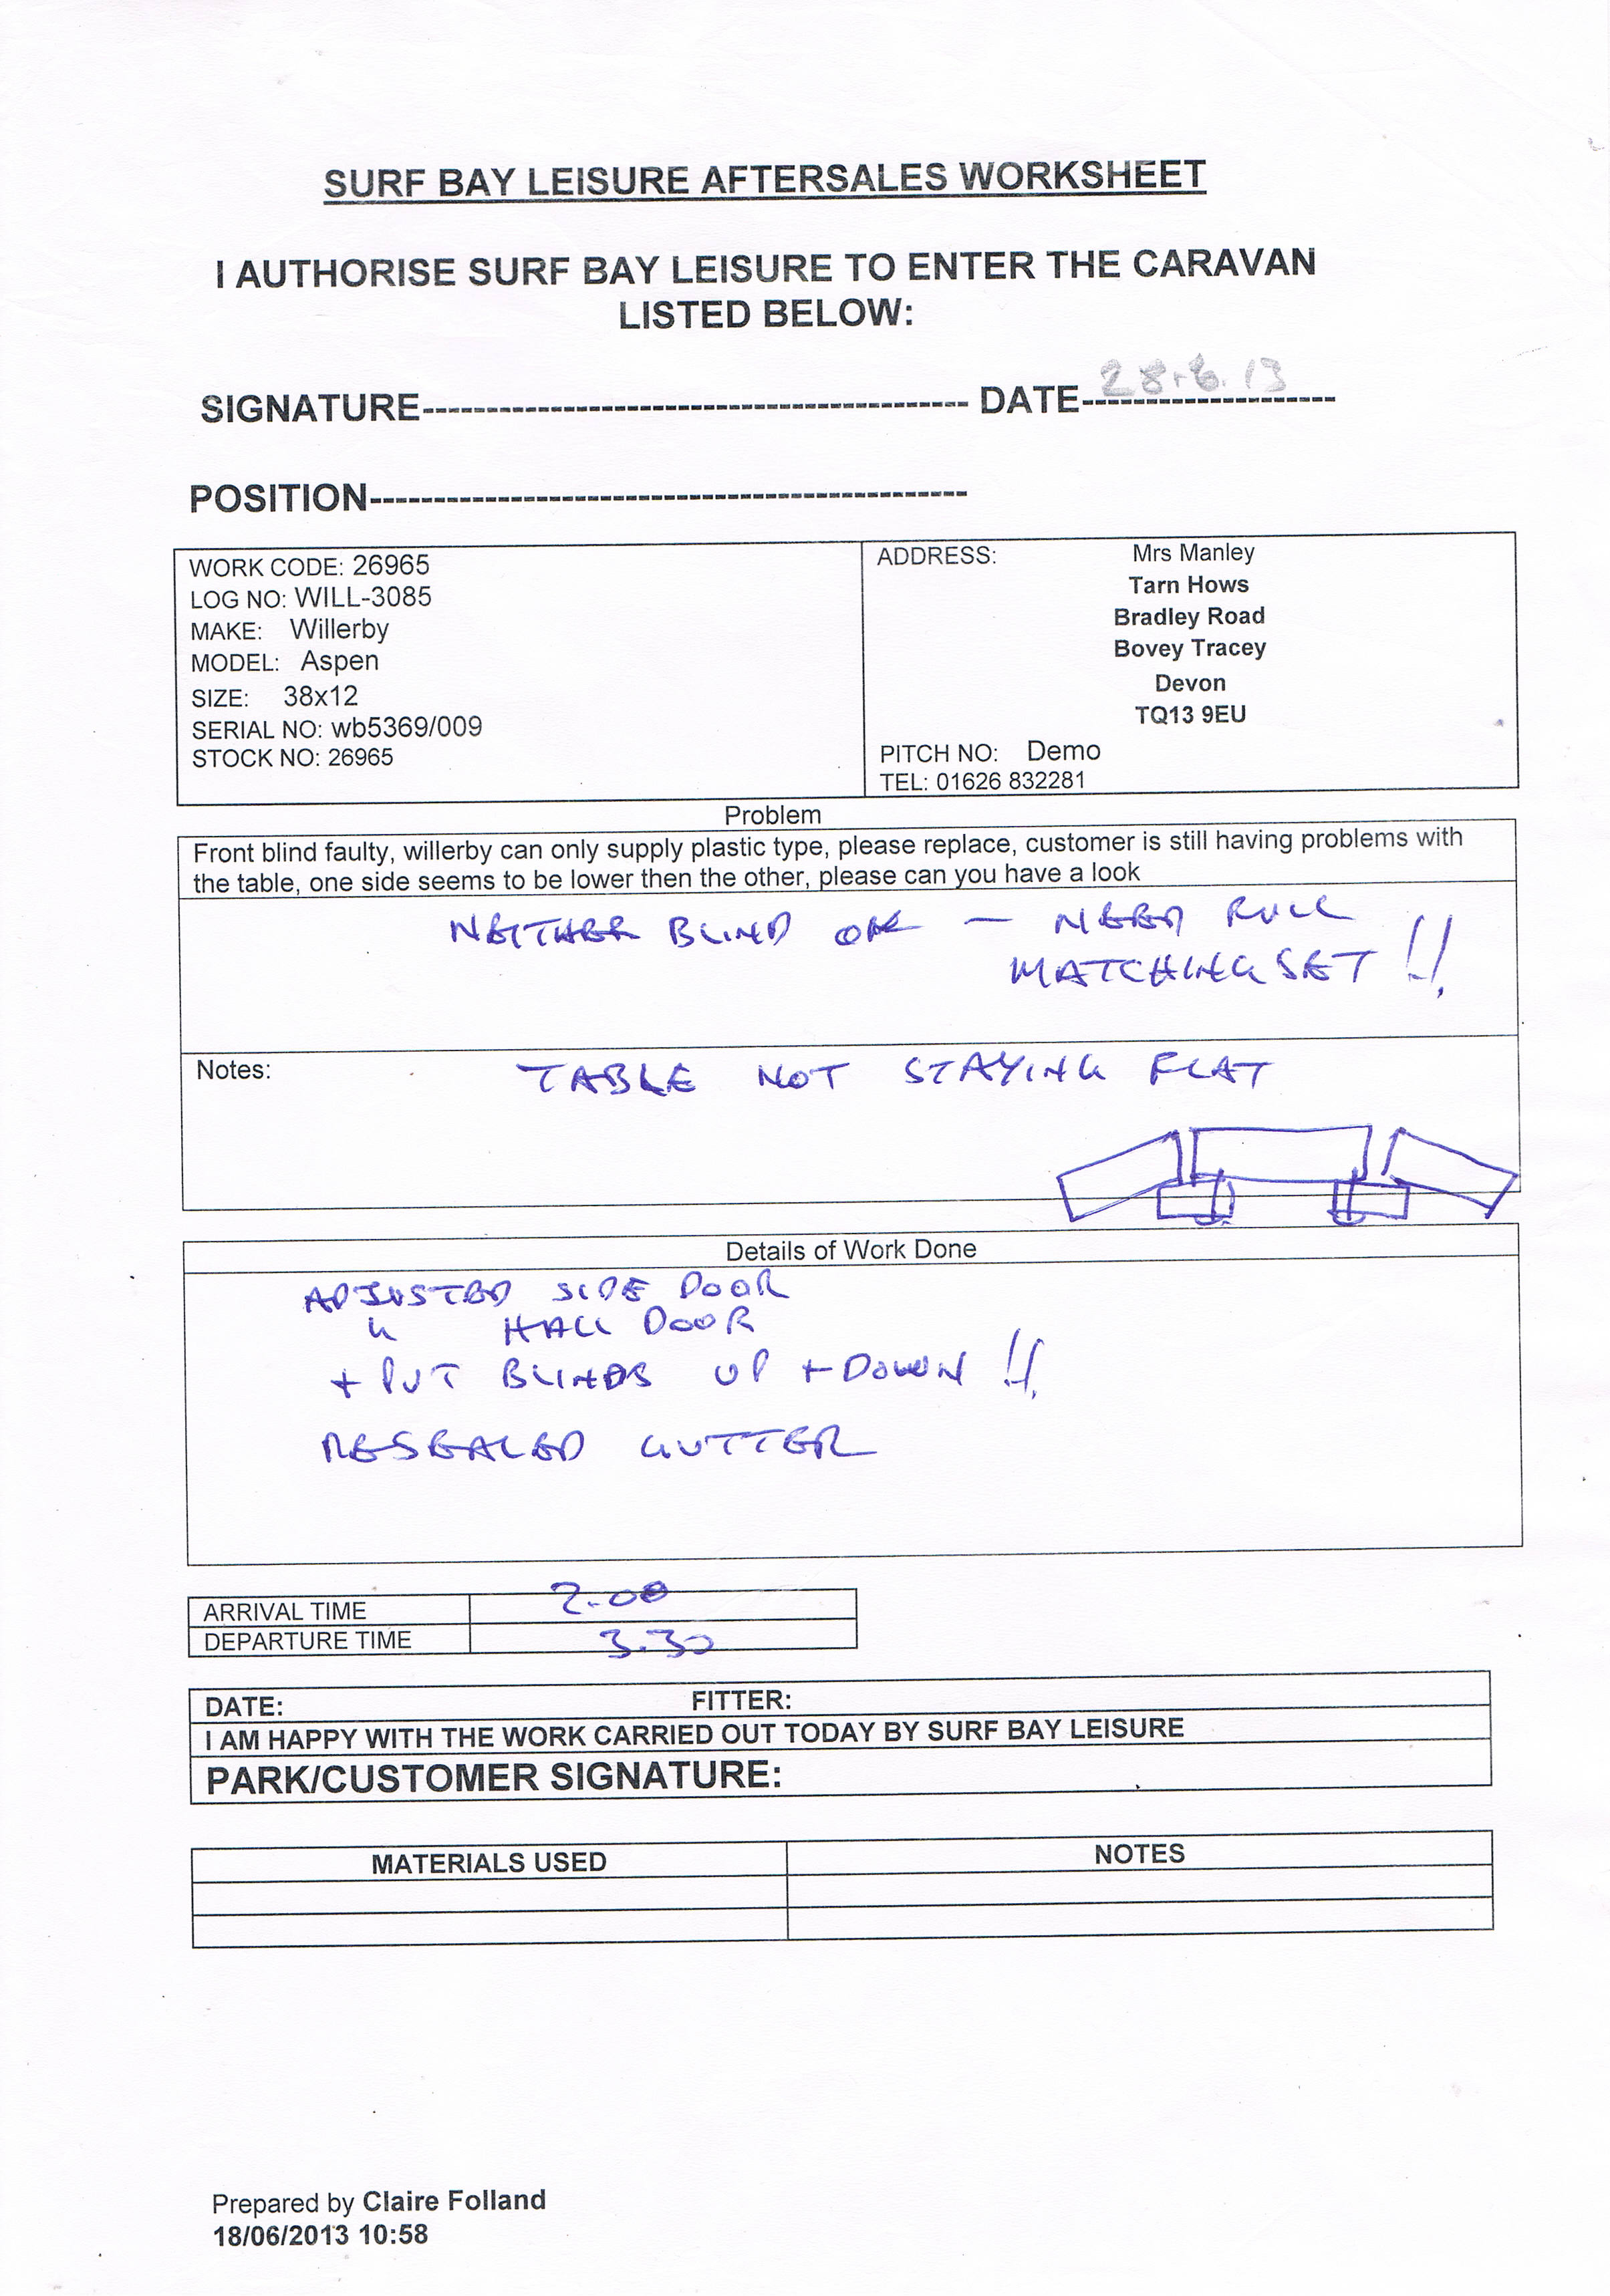 SURF BAY LEISURE AFTERSALES WORKSHEET
I AUTHORISE SURF BAY LEISURE TO ENTER THE CARAVAN
LISTED BELOW:
SIGNATURE------------------------------------------- DATE--------------------
28.6.13
POSITION-----------------------------------------------
WORK CODE: 26965
LOG NO: WILL-3085
MAKE: Willerby
MODEL: Aspen
SIZE: 38x12
SERIAL NO: wb5369/009
STOCK NO: 26965
ADDRESS: Mrs Manley
Tarn Hows
Bradley Road
Bovey Tracey
Devon
TQ13 9EU
PITCH NO: Demo
TEL: 01626 832281
Problem
Front blind faulty, willerby can only supply plastic type, please replace, customer is still having problems with
the table, one side seems to be lower then the other, please can you have a look
NEITHER BLIND OK — NEED FULL
MATCHING SET !!
Notes: TABLE NOT STAYING FLAT
Details of Work Done
ADJUSTED SIDE DOOR
" HALL DOOR
+ PUT BLINDS UP + DOWN !!
RESEALED GUTTER
ARRIVAL TIME 2.00
DEPARTURE TIME 3.30
DATE: FITTER:
I AM HAPPY WITH THE WORK CARRIED OUT TODAY BY SURF BAY LEISURE
PARK/CUSTOMER SIGNATURE:
MATERIALS USED NOTES
Prepared by Claire Folland
18/06/2013 10:58